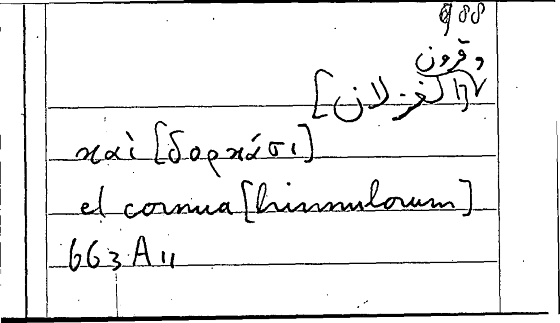 وقرون
[الغزلان]
καὶ [δορκάσι]
et cornua [hinnulorum]
663 A 11